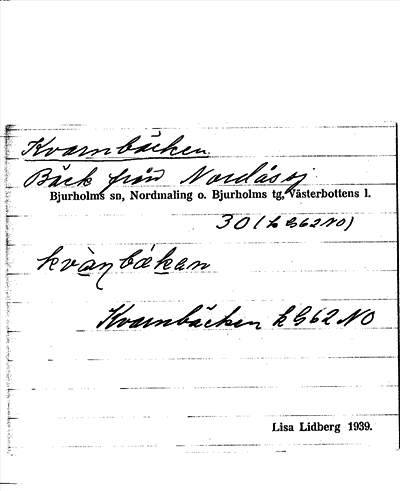 Kvarnbäcken.
Bäck från Nordåssj
Bjurholms sn, Nordmaling o. Bjurholms tg, Västerbottens l.
30 (k G62NO)
kvàṇbákan
Kvarnbäcken k G62 NO
Lisa Lidberg 1939.